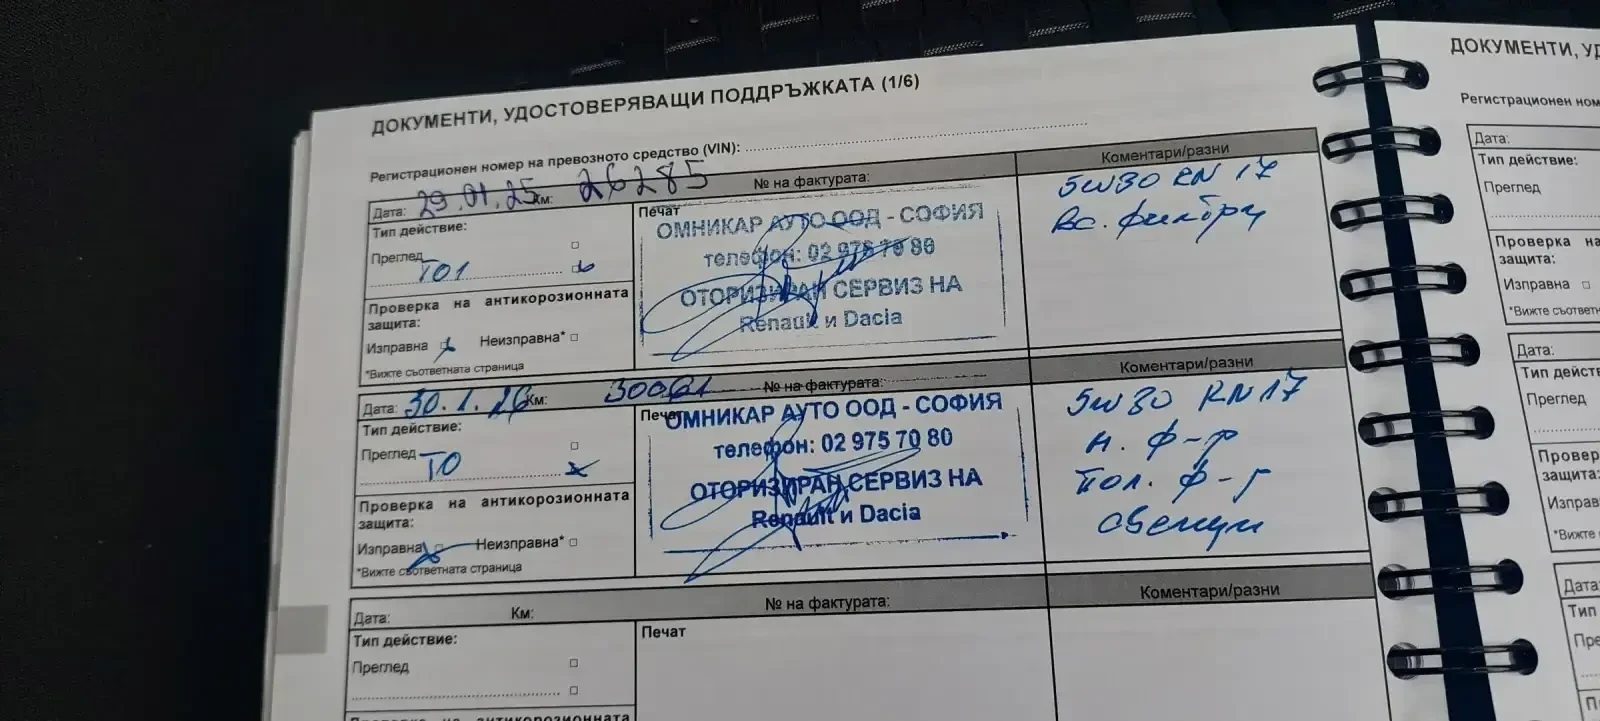 ДОКУМЕНТИ, УДОСТОВЕРЯВАЩИ ПОДДРЪЖКАТА (1/6)
Регистрационен номер на превозното средство (VIN):
Дата: 29.01.25 Км: 26285 № на фактурата: Коментари/разни
Тип действие:
Преглед
ТО1
Проверка на антикорозионната
защита:
Изправна Неизправна*
*Вижте съответната страница
Печат
ОМНИКАР АУТО ООД - СОФИЯ
телефон: 02 975 70 80
ОТОРИЗИРАН СЕРВИЗ НА
Renault и Dacia
5W30 RN 17
Вс. филтри
Дата: 30.1.26 Км: 30061 № на фактурата: Коментари/разни
Тип действие:
Преглед
ТО
Проверка на антикорозионната
защита:
Изправна Неизправна*
*Вижте съответната страница
Печат
ОМНИКАР АУТО ООД - СОФИЯ
телефон: 02 975 70 80
ОТОРИЗИРАН СЕРВИЗ НА
Renault и Dacia
5W30 RN17
м. ф-р
пол. ф-р
свещи
Дата: Км: № на фактурата: Коментари/разни
Тип действие:
Преглед
Печат
Проверка на антикорозионната
ДОКУМЕНТИ,
Регистрационен
Дата:
Тип действие:
Преглед
Проверка на
защита:
Изправна
*Вижте
Дата:
Тип
Преглед
защита:
*Вижте
Дата:
Тип